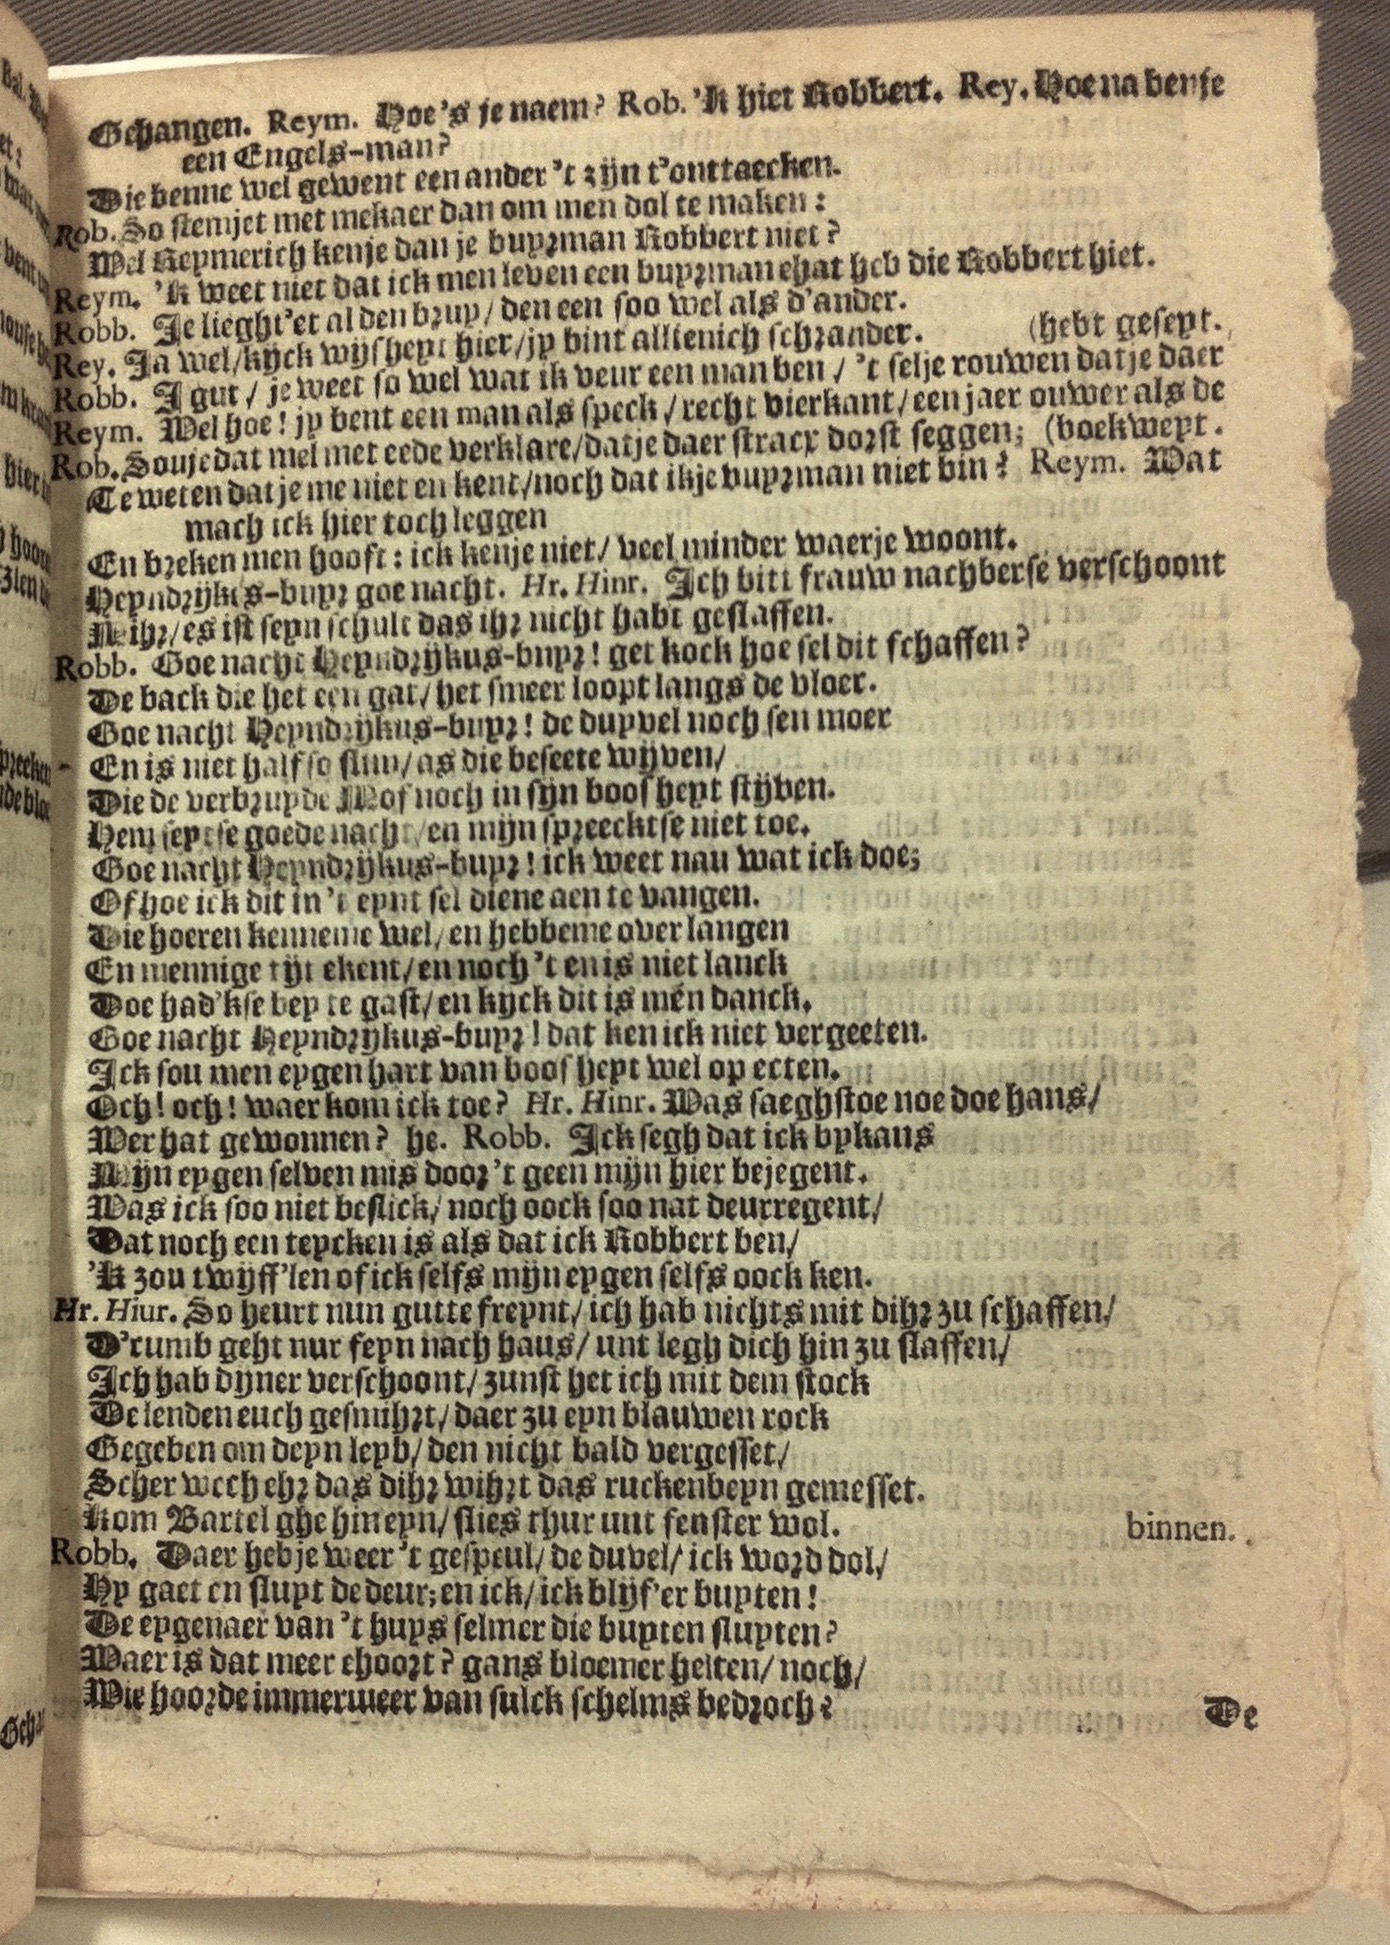 Gehangen. Reym. Hoe's je naem? Rob. 'K hiet Robbert. Rey. Hoe na benje
een Engels-man?
Die benne wel gewent een ander 't zijn t'onttaecken.
Rob. So stemjet met mekaer dan om men dol te maken:
Wel Reymerich kenje dan je buyrman Robbert niet?
Reym. 'K weet niet dat ick men leven een buyrman ehat heb die Robbert hiet.
Robb. Je lieght'et al den bruy/ den een soo wel als d'ander.
Rey. Ja wel/kijck wijsheyt hier/jy bint allienich schrander. (hebt geseyt.
Robb. J gut/ je weet so wel wat ik veur een man ben/ 't selje rouwen datje daer
Reym. Wel hoe! jy bent een man als speck/recht vierkant/een jaer ouwer als de
Rob. Souje dat mel met eede verklare/datje daer stracx dorst seggen; (boekweyt.
Te weten datje me niet en kent/noch dat ikje buyrman niet bin? Reym. Wat
mach ick hier toch leggen
En breken men hooft: ick kenje niet/ veel minder waerje woont.
Heyndrijkus-buyr goe nacht. Hr. Hinr. Ich bitt frauw nachberse verschoont
Mihr/es ist seyn schult das ihr nicht habt geslaffen.
Robb. Goe nacht Heyndrijkus-buyr! get kock hoe sel dit schaffen?
De back die het een gat/het smeer loopt langs de vloer.
Goe nacht Heyndrijkus-buyr! de duyvel noch sen moer
En is niet half so slim/as die beseete wijven/
Die de verbruyde Mof noch in sijn boosheyt stijven.
Hem seytse goede nacht/en mijn spreecktse niet toe.
Goe nacht Heyndrijkus-buyr! ick weet nau wat ick doe;
Of hoe ick dit in 't eynt sel diene aen te vangen.
Die hoeren kenneme wel/en hebbeme over langen
En mennige tijt ekent/en noch 't en is niet lanck
Doe had'kse bey te gast/en kijck dit is men danck.
Goe nacht Heyndrijkus-buyr! dat ken ick niet vergeeten.
Ick sou men eygen hart van boosheyt wel op eeten.
Och! och! waer kom ick toe? Hr. Hinr. Was saeghstoe noe doe hans/
Wer hat gewonnen? he. Robb. Ick segh dat ick bykans
Mijn eygen selven mis door 't geen mijn hier bejegent.
Was ick soo niet beslick/noch oock soo nat deurregent/
Dat noch een teycken is als dat ick Robbert ben/
'K zou twijff'len of ick selfs mijn eygen selfs oock ken.
Hr. Hiur. So heurt nun gutte freynt/ich hab nichts mit dihr zu schaffen/
D'rumb geht nur feyn nach haus/unt legh dich hin zu slaffen/
Ich hab dijner verschoont/zunst het ich mit dem stock
De lenden euch gesmihrt/daer zu eyn blauwen rock
Gegeben om deyn leyb/den nicht bald vergesset/
Scher wech ehr das dihr wihrt das ruckenbeyn gemesset.
Kom Bartel ghe hineyn/slies thur unt fenster wol. binnen.
Robb. Daer hebje weer 't gespeul/de duvel/ick word dol/
Hy gaet en sluyt de deur; en ick/ick blijf'er buyten!
De eygenaer van 't huys selmer die buyten sluyten?
Waer is dat meer ehoort? gans bloemer herten/noch/
Wie hoorde immerweer van sulck schelms bedroch?
De